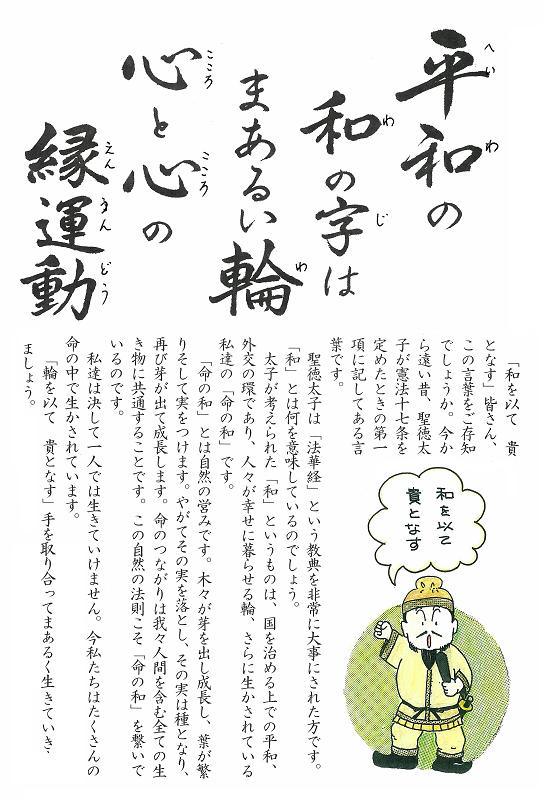 平和の
和の字は
まあるい輪
心と心の
縁運動
へいわ
わ
じ
わ
こころ
こころ
えんうんどう
「和を以て　貴
となす」皆さん、
この言葉をご存知
でしょうか。今か
ら遠い昔、聖徳太
子が憲法十七条を
定めたときの第一
項に記してある言
葉です。
聖徳太子は「法華経」という教典を非常に大事にされた方です。
「和」とは何を意味しているのでしょう。
太子が考えられた「和」というものは、国を治める上での平和、
外交の環であり、人々が幸せに暮らせる輪、さらに生かされている
私達の「命の和」です。
「命の和」とは自然の営みです。木々が芽を出し成長し、葉が繁
りそして実をつけます。やがてその実を落とし、その実は種となり、
再び芽が出て成長します。命のつながりは我々人間を含む全ての生
き物に共通することです。この自然の法則こそ「命の和」を繋いで
いるのです。
私達は決して一人では生きていけません。今私たちはたくさんの
命の中で生かされています。
「輪を以て　貴となす」手を取り合ってまあるく生きていき
ましょう。
和を以て
貴となす